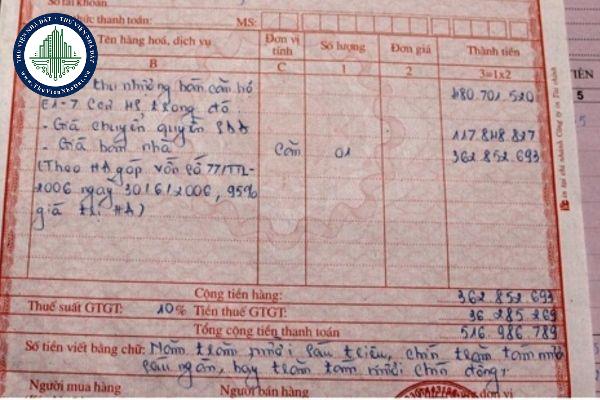 THƯ VIỆN NHÀ ĐẤT
www.ThuVienNhaDat.vn
Số tài khoản
thức thanh toán: MS:
Tên hàng hoá, dịch vụ Đơn vị tính Số lượng Đơn giá Thành tiền
B C 1 2 3=1x2
thu nhượng bán căn hộ 480.701.520
E1-7 trong đó.
- Giá chuyển quyền SDĐ 117.848.827
- Giá bán nhà Căn 01 362.852.693
(Theo HĐ góp vốn số 77/TTL-
2006 ngày 30/6/2006, 95%
giá trị HĐ)
Cộng tiền hàng: 362.852.693
Thuế suất GTGT: 10% Tiền thuế GTGT: 36.285.269
Tổng cộng tiền thanh toán 516.986.789
Số tiền viết bằng chữ: Năm trăm mười sáu triệu, chín trăm tám mươi
sáu ngàn, bảy trăm tám mươi chín đồng.
Người mua hàng Người bán hàng đơn vị
TIỀN
5